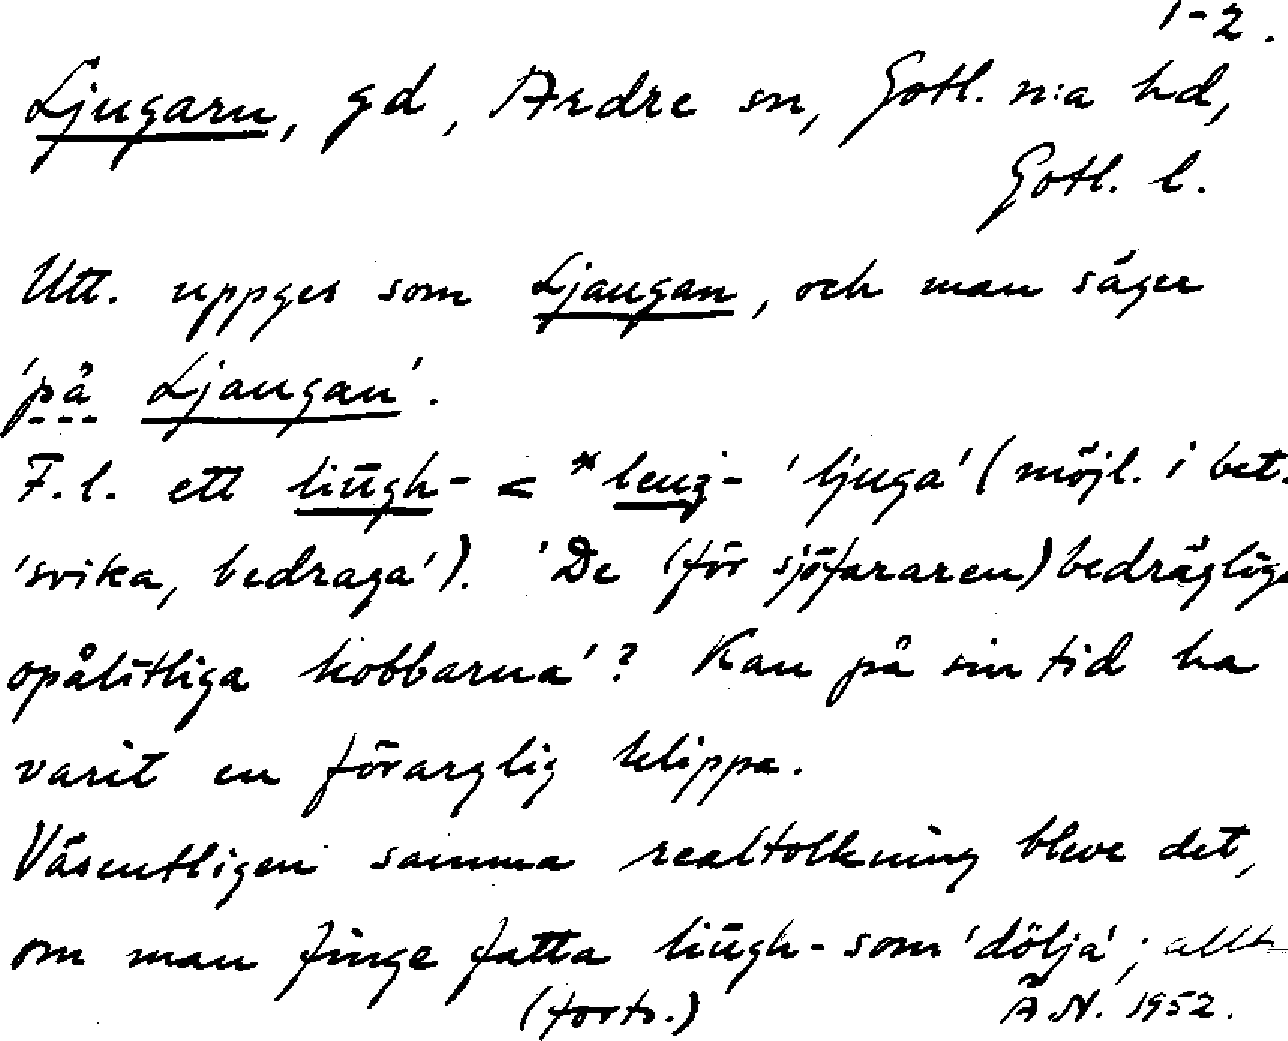 1-2.
Ljugarn, gd, Ardre sn, Gotl. n:a hd,
Gotl. l.
Utt. uppges som Ljaugan, och man säger
'på Ljaugan'.
F.l. ett liūgh- < *leuʒ- 'ljuga' (möjl. i bet.
'svika, bedraga'). 'De (för sjöfararen) bedrägliga
opålitliga kobbarna'? Kan på sin tid ha
varit en förarglig klippa.
Väsentligen samma realtolkning bleve det,
om man finge fatta liūgh- som 'dölja';
(forts.) Ä N. 1952.